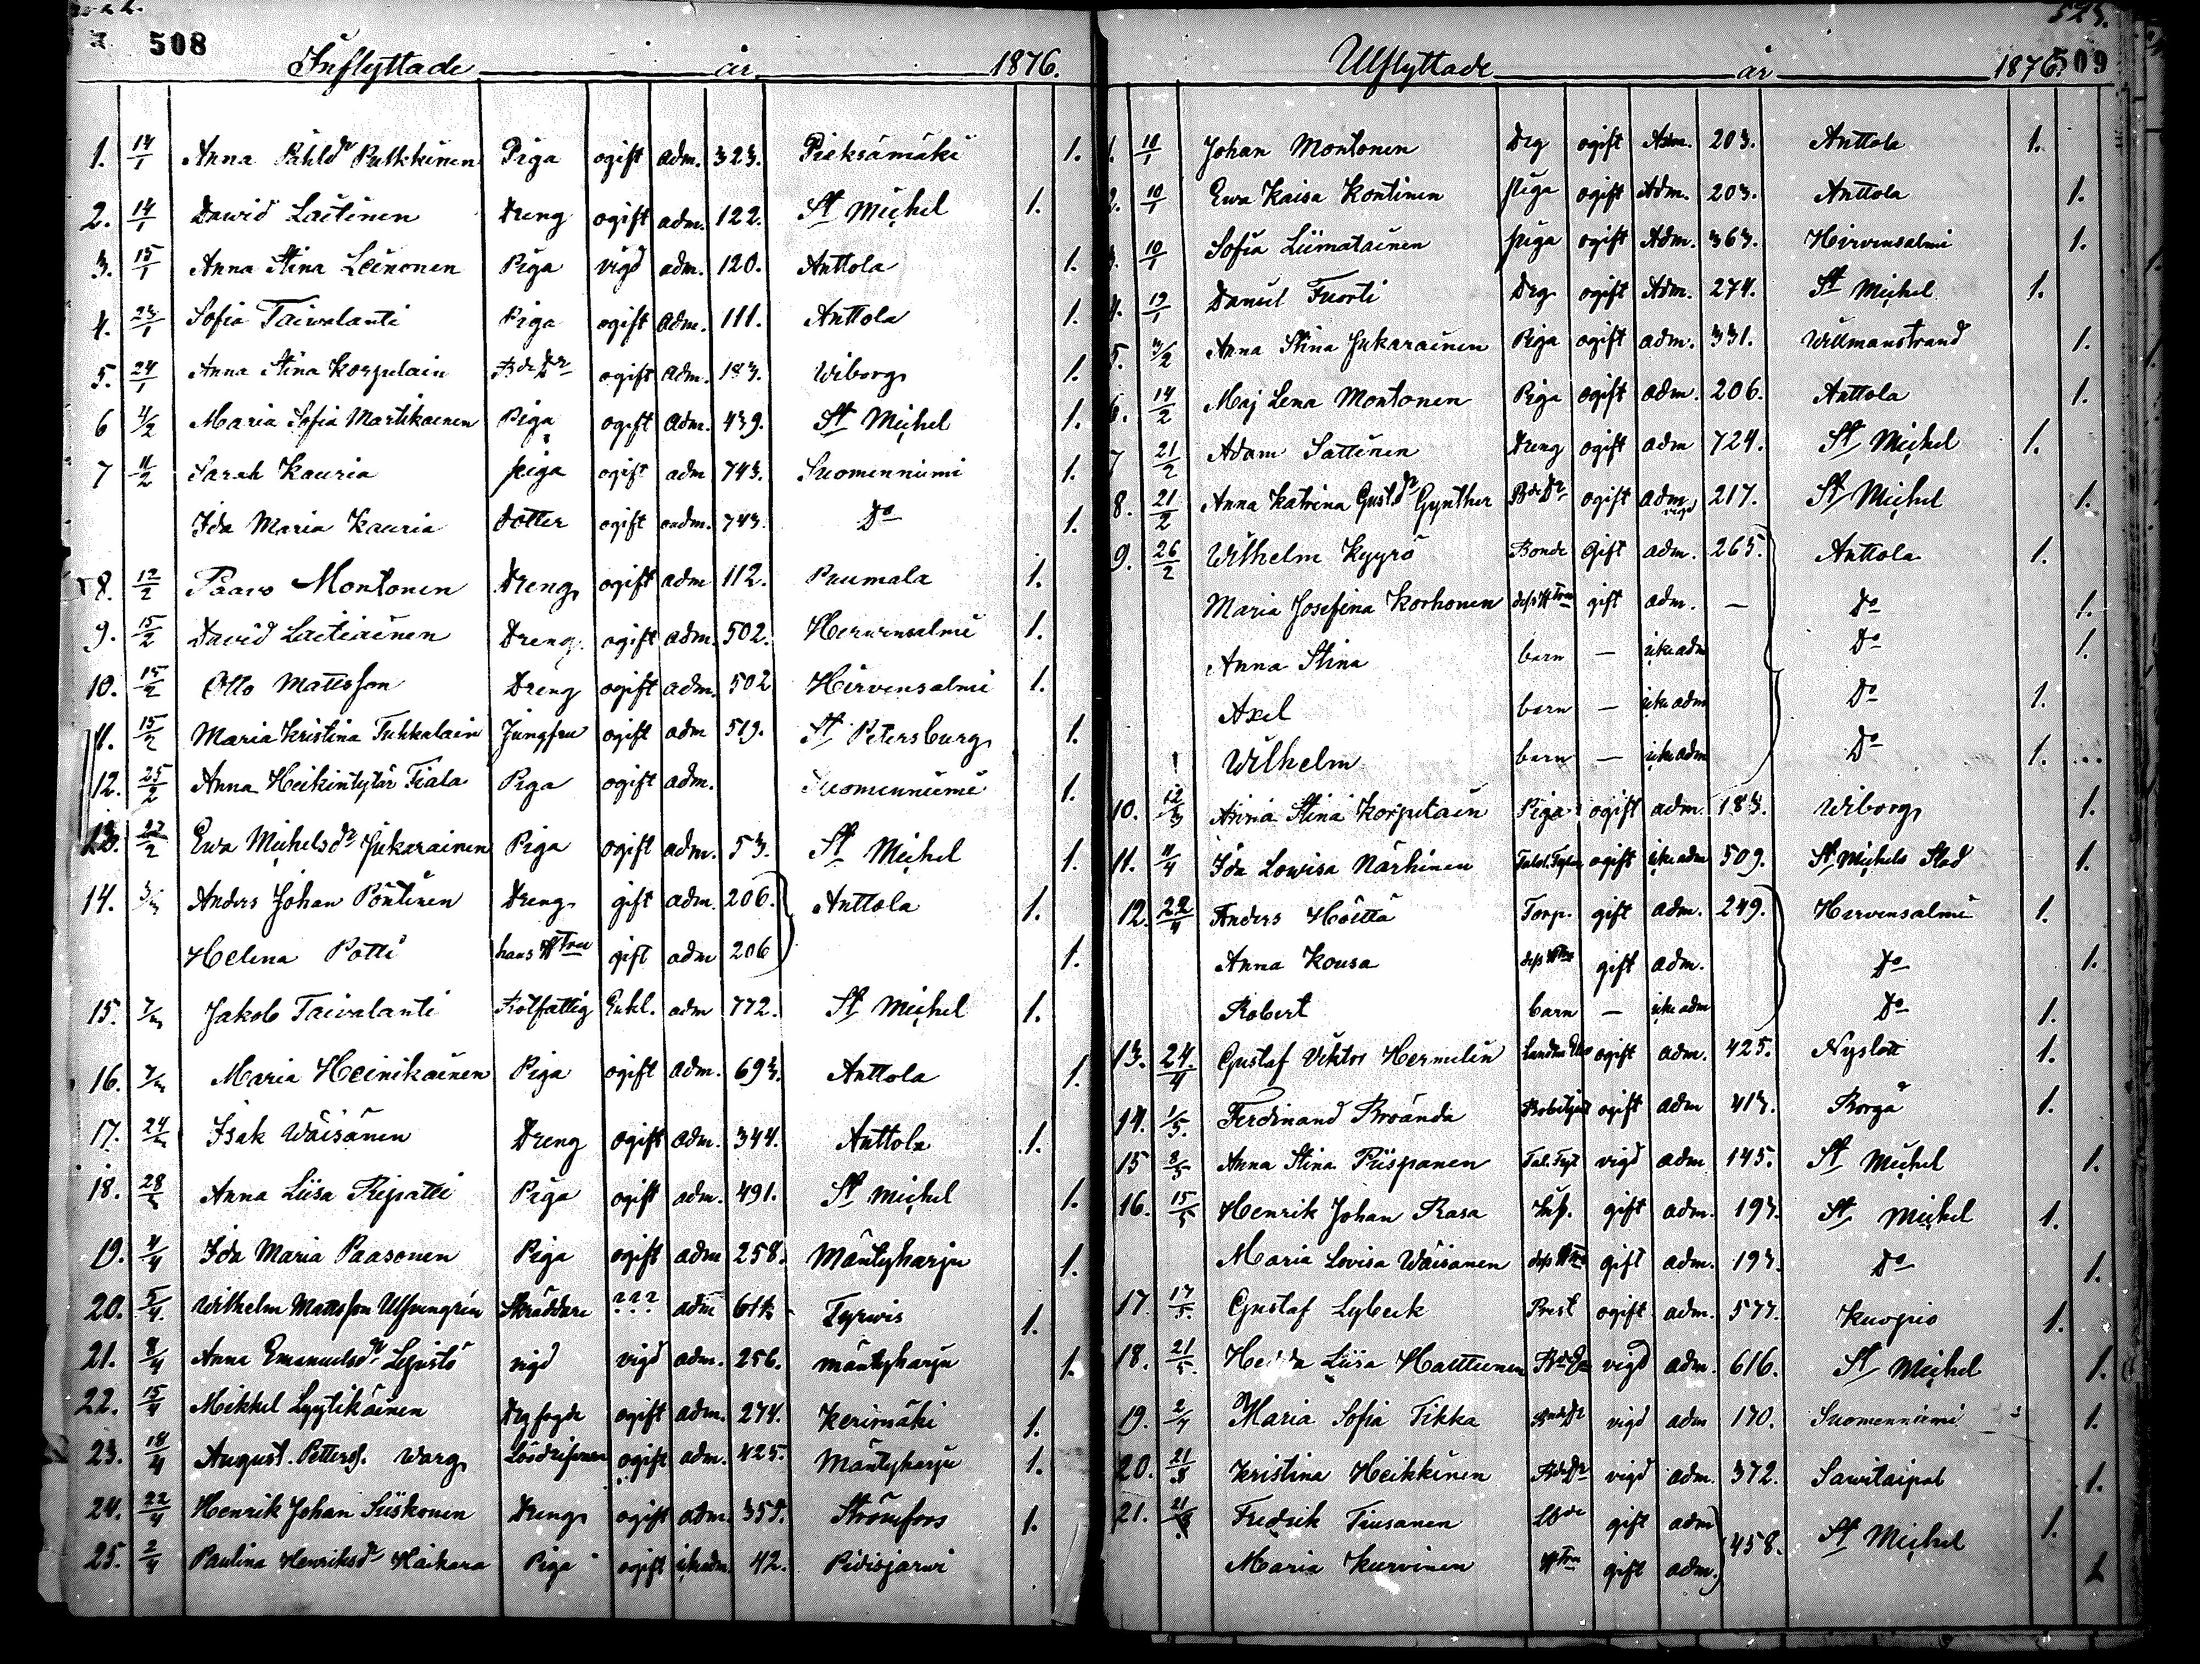 508
Inflyttade år 1876.
1. 14/1 Anna Påhlsdr Pulkkinen Piga ogift adm. 323. Pieksämäki 1.
2. 14/1 Dawid Laitinen Dreng ogift adm. 122. St Michel 1.
3. 15/1 Anna Stina Leinonen Piga vigd adm. 120. Anttola 1.
4. 23/1 Sofia Taivalanti Piga ogift adm. 111. Anttola 1.
5. 24/1 Anna Stina Korpulain BdeDr ogift adm. 183. Wiborg 1.
6 4/2 Maria Sofia Martikainen Piga ogift adm. 439. St Michel 1.
7 11/2 Sarah Kauria piga ogift adm 743. Suomenniemi 1.
Ida Maria Kauria dotter ogift oadm. 743. Do 1.
8. 12/2 Paavo Montonen Dreng ogift adm 112. Puumala 1.
9. 15/2 David Laitiainen Dreng ogift adm. 502. Hirvensalmi 1.
10. 15/2 Otto Mattsson Dreng ogift adm. 502 Hirvensalmi 1.
11. 15/2 Maria Kristina Tuhkalain Jungfru ogift adm 519. St Petersburg 1.
12. 25/2 Anna Heikintytär Tiala Piga ogift adm. Suomenniemi 1.
13. 27/2 Ewa Michelsdr Jukarainen Piga ogift adm. 53. St Michel 1.
14. 3/3 Anders Johan Pöntinen Dreng gift adm. 206. Anttola 1.
Helena Pötti hans Hstru gift adm 206 1.
15. 7/3 Jakob Taivalanti Rotfattig Enkl. adm 772. St Michel 1.
16. 7/3 Maria Heinikainen Piga ogift adm. 693. Anttola 1.
17. 24/3 Isak Wäisänen Dreng ogift adm. 344. Anttola 1.
18. 28/3 Anna Liisa Ripatti Piga ogift adm. 491. St Michel 1.
19. 4/4 Ida Maria Paasonen Piga ogift adm 258. Mäntyharju 1.
20. 5/4. Wilhelm Mattsson Skräddare ??? adm Tyrwis 1.
21. 8/4 Anna Emanuelsdr Lepistö vigd vigd adm. 256. Mäntyharju 1.
22. 15/4 Mikkel Lyytikäinen Drgfogde ogift adm. 274. Kerimäki 1.
23. 18/4 August Petters. Warg Lösdrifvare ogift adm. 425. Mäntyharju 1.
24. 22/4 Henrik Johan Siiskonen Dreng ogift adm. Strömfors 1.
25. 2/4 Paulina Henriksdr Haikara Piga ogift ickeadm. 42. Pidisjärwi
523.
509
Utflyttade år 1876.
1. 10/1 Johan Montonen Drg ogift Adm. 203. Anttola 1.
2. 10/1 Ewa Kaisa Kontinen piga ogift Adm. 203. Anttola 1.
3. 10/1 Sofia Liimatainen piga ogift Adm. 363. Hirvensalmi 1.
4. 19/1 Daniel Tuorti Drg ogift Adm. 274. St Michel 1.
5. 3/2 Anna Stina Jukarainen Piga ogift adm. 331. Willmanstrand 1.
6. 14/2 Maj Lena Montonen Piga ogift adm. 206. Anttola 1.
7 21/2 Adam Sattinen Dreng ogift adm 724. St Michel 1.
8. 21/2 Anna Katrina Gust.dr Gynther BdeDr ogift adm vigd 217. St Michel 1.
9. 26/2 Wilhelm Kyyrö Bonde Gift adm. 265. Anttola 1.
Maria Josefina Korhonen dess Hstru gift adm. — Do 1.
Anna Stina barn — icke adm Do 1.
Axel barn — icke adm Do 1.
Wilhelm barn — icke adm Do 1.
10. 12/3 Anna Stina Korpulain Piga ogift adm. 183. Wiborg 1.
11. 11/4 Ida Lowisa Närhinen ogift icke adm 509. St Michels Stad 1.
12. 22/4 Anders Hölttä Torp. gift adm. 249. Hirvensalmi 1.
Anna Kousa dess Hstru gift adm. Do 1.
Robert barn — icke adm Do 1.
13. 24/4 Gustaf Viktor Hermelin ogift adm. 425. Nyslott 1.
14. 1/5. Ferdinand ogift adm 413. Borgå 1.
15 8/5 Anna Stina Piispanen vigd adm 145. St Michel 1.
16. 15/5 Henrik Johan Rasa Inh. gift adm. 193. St Michel 1.
Maria Lovisa Wäisänen dess Hstru gift adm. 193. Do 1.
17. 17/5. Gustaf Lybeck Prest ogift adm. 577. Kuopio 1.
18. 21/5. Hedda Liisa Hatttunen BdeDr vigd adm. 616. St Michel 1.
19. 2/7 Maria Sofia Tikka BdeDr vigd adm 170. Suomenniemi 1.
20. 21/8 Kristina Heikkinen BdeDr vigd adm. 372. Sawitaipal 1.
21. 21/8 Fredrik Tiusanen gift adm 458. St Michel 1.
Maria Kurvinen Hstru gift adm. 1